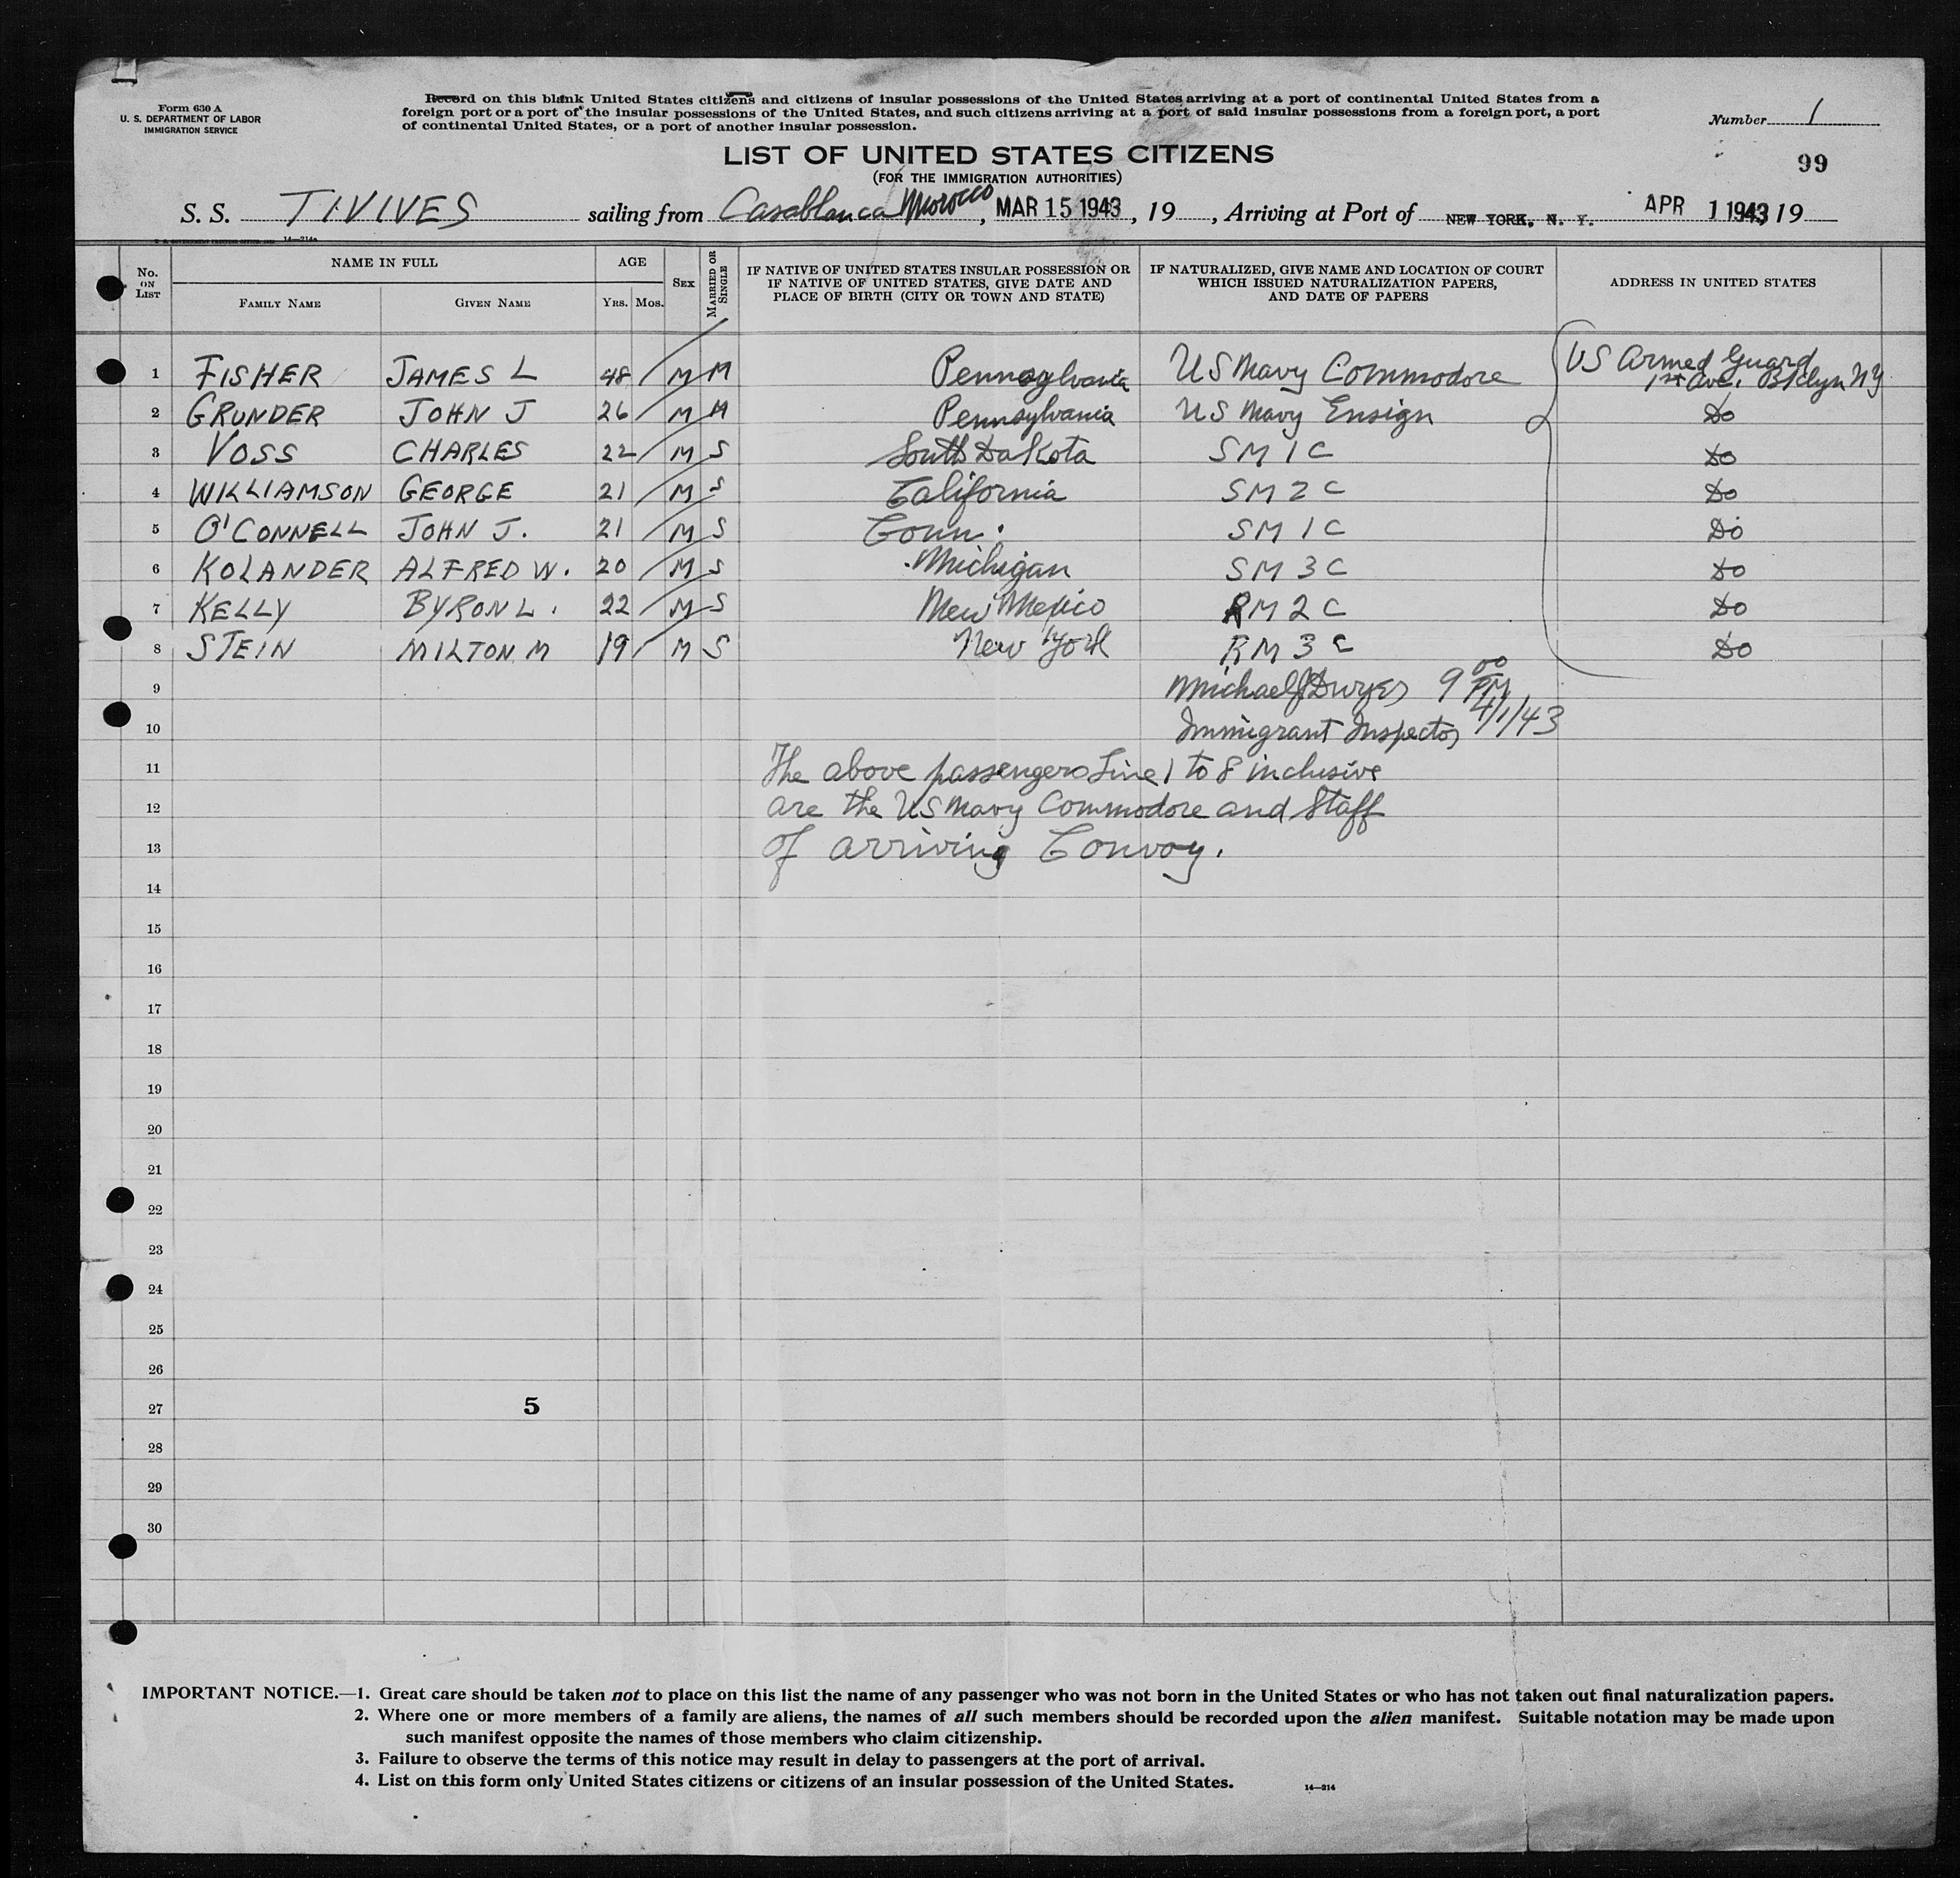 Form 630 A
U. S. DEPARTMENT OF LABOR
IMMIGRATION SERVICE
Record on this blank United States citizens and citizens of insular possessions of the United States arriving at a port of continental United States from a
foreign port or a port of the insular possessions of the United States, and such citizens arriving at a port of said insular possessions from a foreign port, a port
of continental United States, or a port of another insular possession.
Number 1
LIST OF UNITED STATES CITIZENS
(FOR THE IMMIGRATION AUTHORITIES)
99
S. S. TIVIVES sailing from Casablanca Morocco, MAR 15 1943, 19 , Arriving at Port of NEW YORK, N. Y. APR 1 1943, 19
14—214a
No. ON LIST
NAME IN FULL
FAMILY NAME GIVEN NAME
AGE
YRS. MOS.
SEX
MARRIED OR SINGLE
IF NATIVE OF UNITED STATES INSULAR POSSESSION OR
IF NATIVE OF UNITED STATES, GIVE DATE AND
PLACE OF BIRTH (CITY OR TOWN AND STATE)
IF NATURALIZED, GIVE NAME AND LOCATION OF COURT
WHICH ISSUED NATURALIZATION PAPERS,
AND DATE OF PAPERS
ADDRESS IN UNITED STATES
1 FISHER JAMES L 48 M M Pennsylvania US Navy Commodore US Armed Guard
1st Ave. Bklyn NY
2 GRUNDER JOHN J 26 M M Pennsylvania US Navy Ensign Do
3 VOSS CHARLES 22 M S South Dakota SM 1 C Do
4 WILLIAMSON GEORGE 21 M S California SM 2 C Do
5 O'CONNELL JOHN J. 21 M S Conn. SM 1 C Do
6 KOLANDER ALFRED W. 20 M S Michigan SM 3 C Do
7 KELLY BYRON L. 22 M S New Mexico RM 2 C Do
8 STEIN MILTON M 19 M S New York RM 3 C Do
9 Michael J Dwyer 9 00 PM
10 Immigrant Inspector 4/1/43
11 The above passengers Line 1 to 8 inclusive
12 are the US Navy Commodore and Staff
13 of arriving Convoy.
14
15
16
17
18
19
20
21
22
23
24
25
26
27 5
28
29
30
IMPORTANT NOTICE.—1. Great care should be taken not to place on this list the name of any passenger who was not born in the United States or who has not taken out final naturalization papers.
2. Where one or more members of a family are aliens, the names of all such members should be recorded upon the alien manifest. Suitable notation may be made upon
such manifest opposite the names of those members who claim citizenship.
3. Failure to observe the terms of this notice may result in delay to passengers at the port of arrival.
4. List on this form only United States citizens or citizens of an insular possession of the United States.
14—214